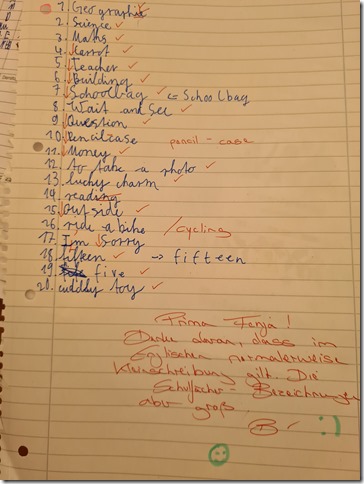 1. Geographie
2. Science
3. Maths
4. Carrot
5. Teacher
6. Building
7. Schoolbag ⇐ Schoolbag
8. Wait and See
9. Question
10. Pencilcase pencil - case
11. Money
12. to take a photo
13. lucky charm
14. reading
15. outside
16. ride a bike / cycling
17. I'm Sorry
18. fifteen → fifteen
19. five
20. cuddly toy
Prima Fenja!
Denke daran, dass im
Englischen normalerweise
Kleinschreibung gilt. Die
Schulfächer - Bezeichnungen
aber groß.
:)